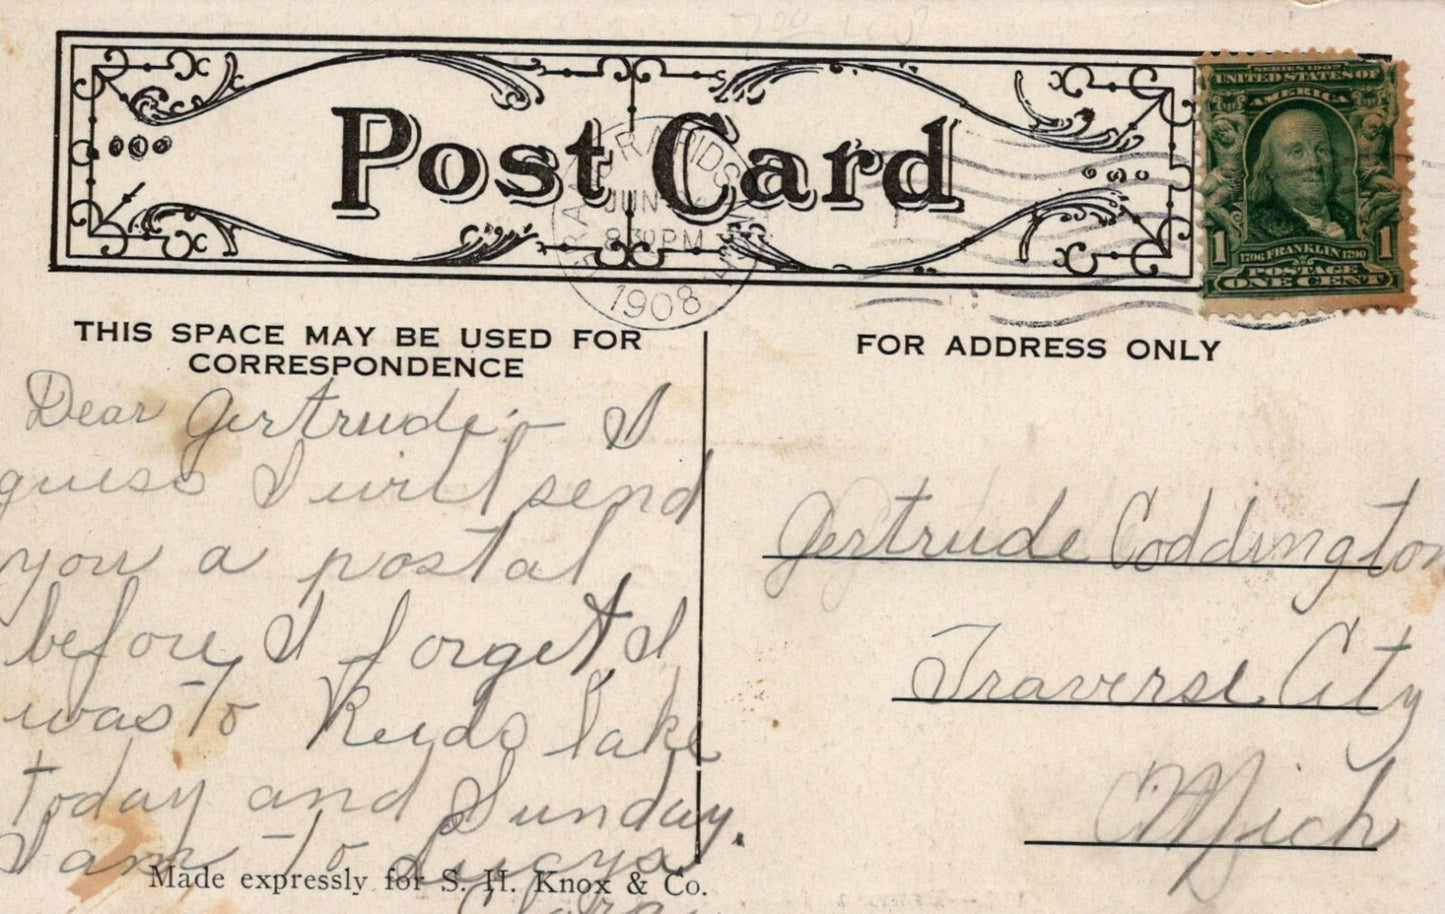 Post Card
GRAND RAPIDS
JUN
830 PM
MICH
1908
SERIES 1902
UNITED STATES OF
AMERICA
1 1706 FRANKLIN 1790 1
POSTAGE
ONE CENT
THIS SPACE MAY BE USED FOR
CORRESPONDENCE
Dear Gertrude:- I
guess I will send
you a postal
before I forget I
was to Reids lake
today and Sunday.
I am to Lucys
FOR ADDRESS ONLY
Gertrude Coddington
Traverse City
Mich
Made expressly for S. H. Knox & Co.